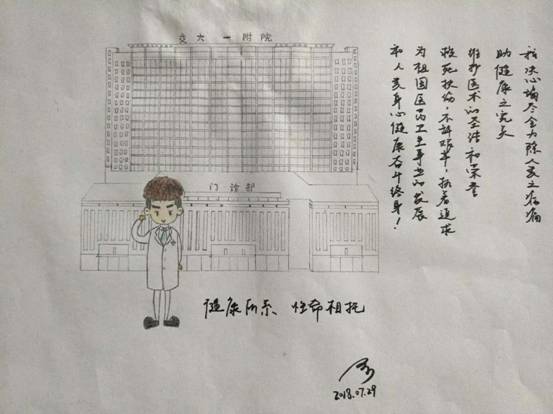 交大一附院
门诊部
我决心竭尽全力除人类之病痛
助健康之完美
维护医术的圣洁和荣誉
救死扶伤，不辞艰辛，执着追求
为祖国医药卫生事业的发展
和人类身心健康奋斗终身！
健康所系、性命相托
2018.07.29